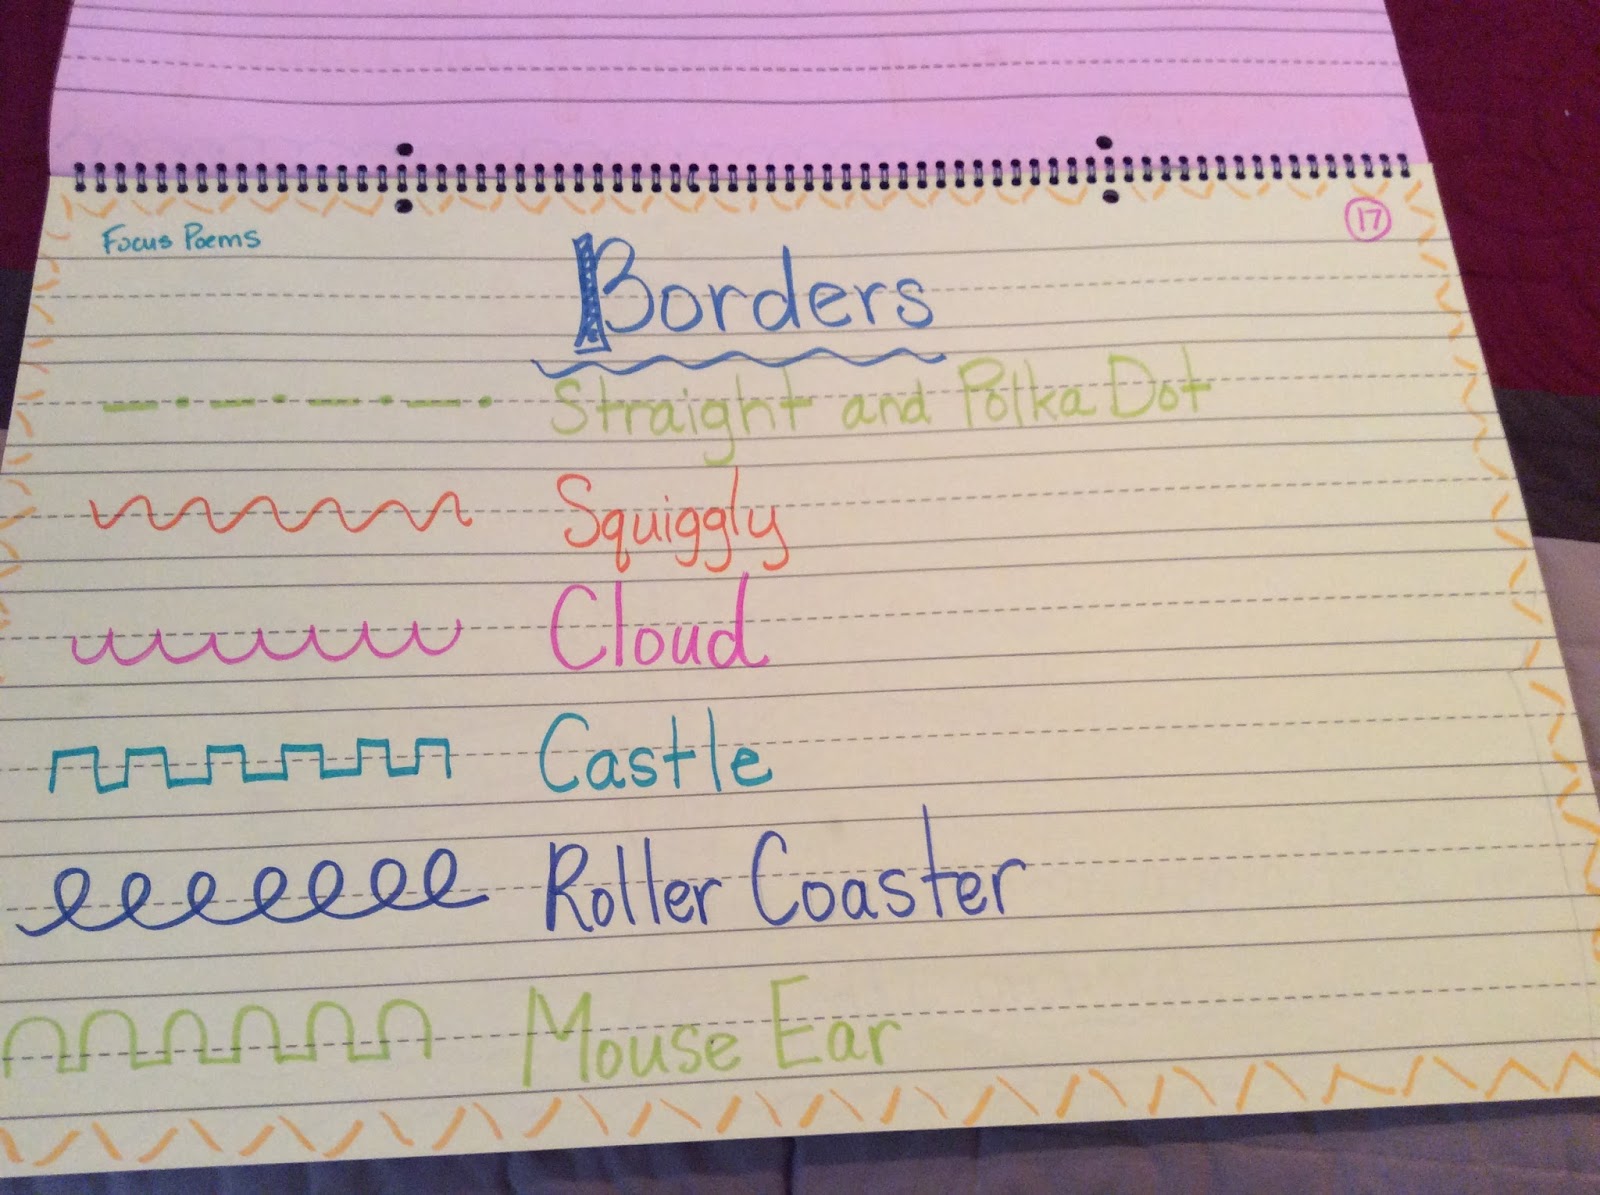 Focus Poems
17
Borders
Straight and Polka Dot
Squiggly
Cloud
Castle
Roller Coaster
Mouse Ear